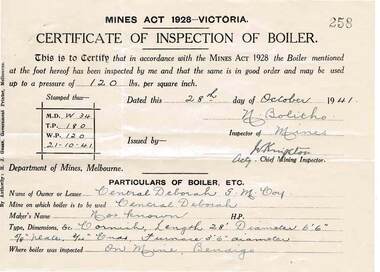 MINES ACT 1928—VICTORIA.
258
CERTIFICATE OF INSPECTION OF BOILER.
This is to Certify that in accordance with the Mines Act 1928 the Boiler mentioned
at the foot hereof has been inspected by me and that the same is in good order and may be used
up to a pressure of 120 lbs. per square inch.
Stamped thus—
Dated this 28th day of October 1941
M.D. W 34
T.P. 180
W.P. 120
21-10-41
Issued by—
Inspector of Mines
Actg. Chief Mining Inspector.
Department of Mines, Melbourne.
PARTICULARS OF BOILER, ETC.
Name of Owner or Lessee Central Deborah G. M. Coy
Mine on which boiler is to be used Central Deborah
Maker's Name Not Known H.P.
Type, Dimensions, &c Cornish, Length 28' Diameter 6'6"
Plate, Ends, Furnace 3'6" diameter
Where boiler was inspected On Mine, Bendigo
By Authority: H. J. Green, Government Printer, Melbourne.